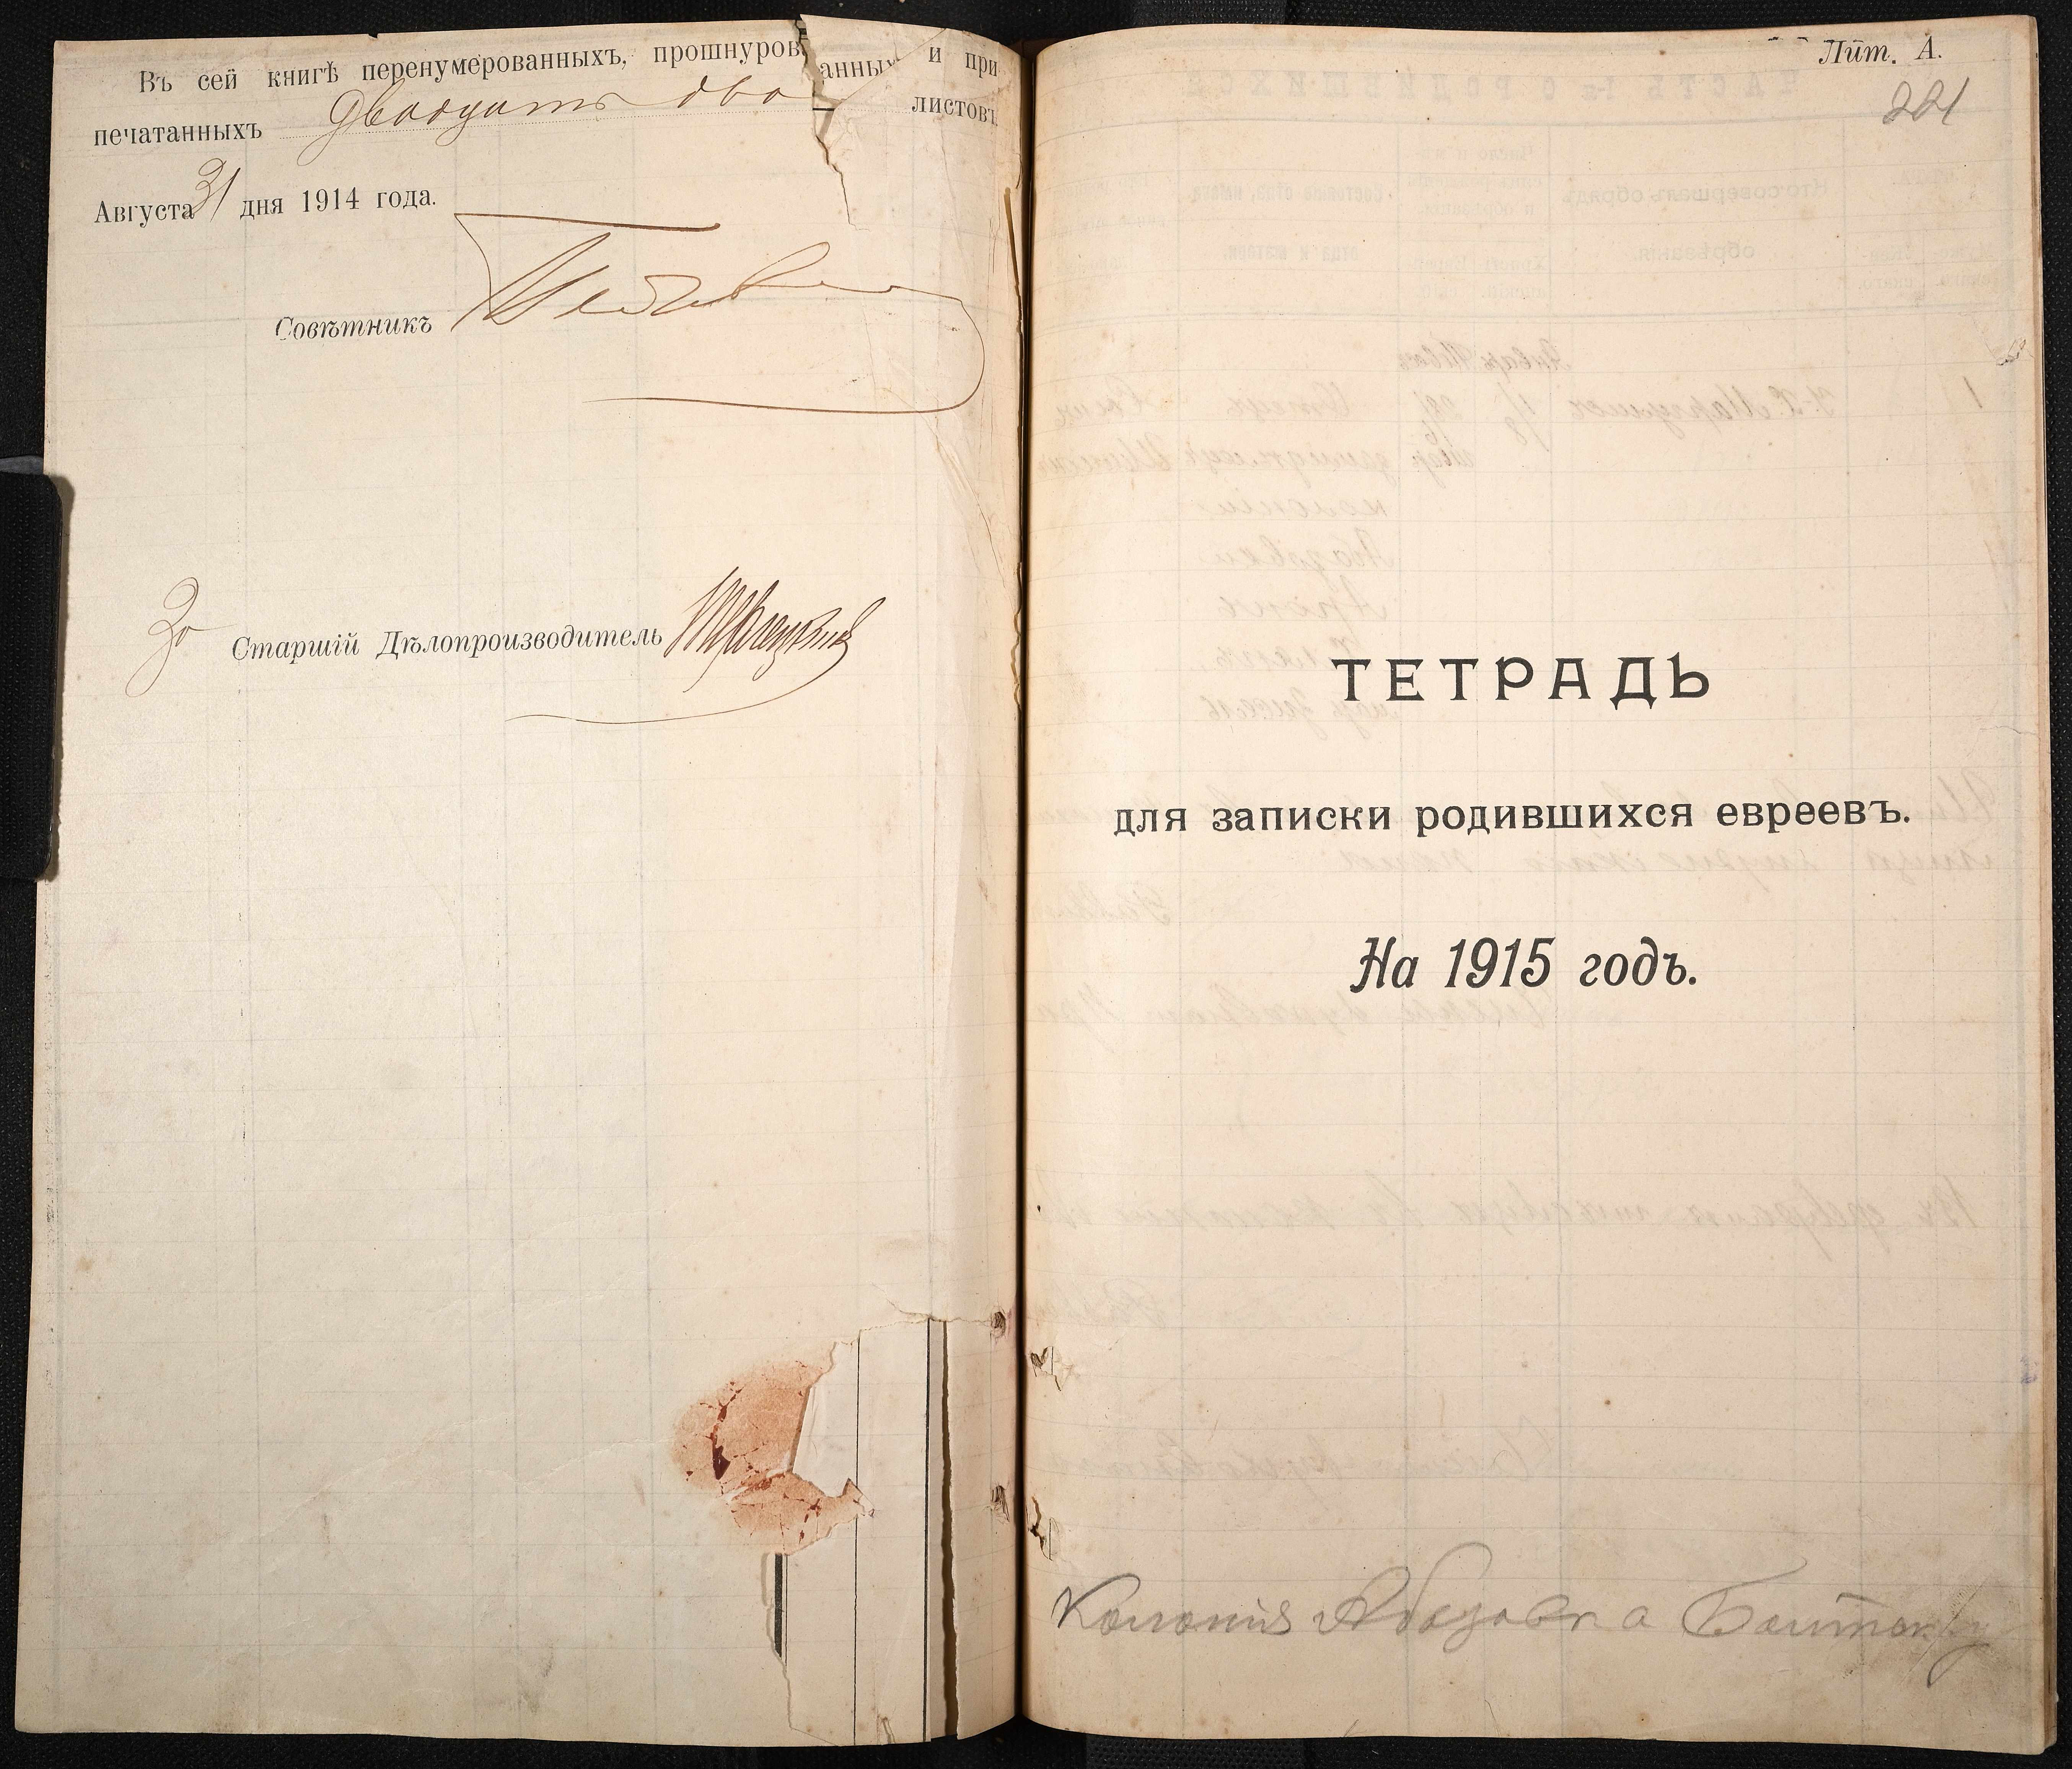 Въ сей книгѣ перенумерованныхъ, прошнурованных и при
печатанныхъ двадцать два листовъ
Августа 31 дня 1914 года.
Совѣтникъ
За Старшій Дѣлопроизводитель
Лит. А.
221
ТЕТРАДЬ
для записки родившихся евреевъ.
На 1915 годъ.
Колонія Абазовка Балтск/у